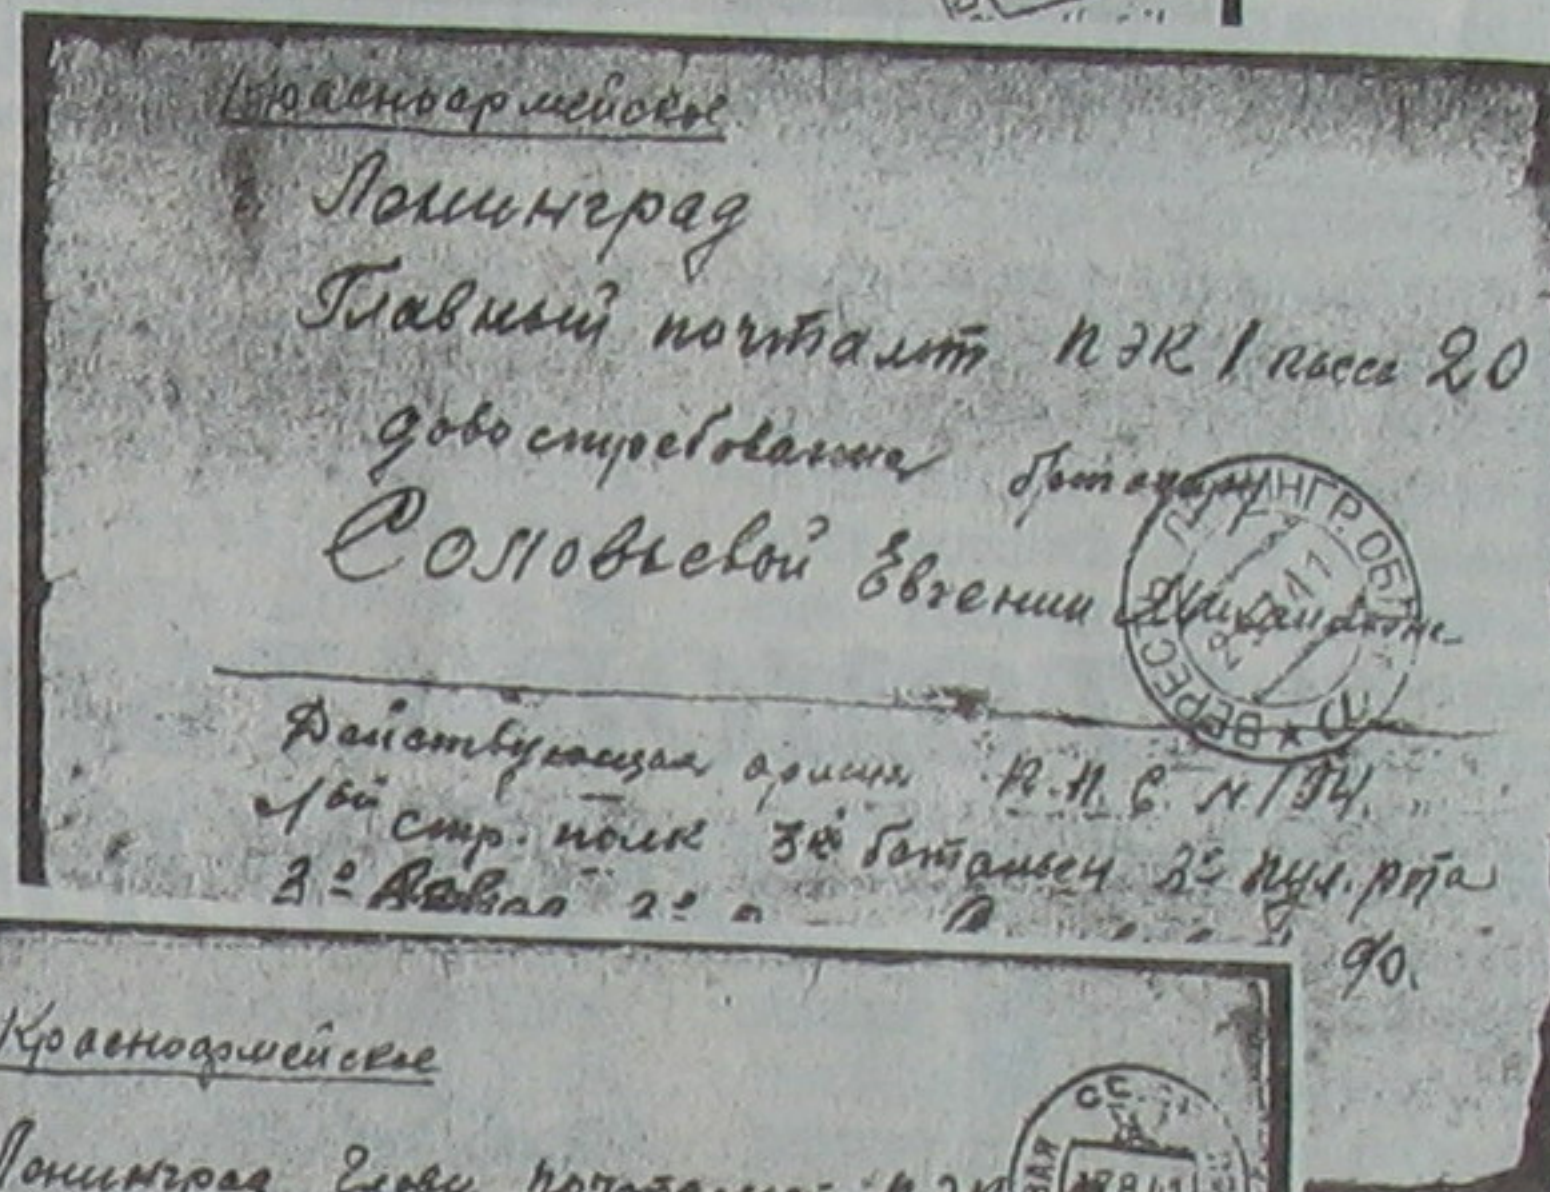 Красноармейское
Ленинград
Главный почтамт ПЭК 1 касса 20
довостребования
Соловьевой Евгении
ЛЕНИНГР. ОБЛ.
Действующая армия П.П.С. №
1ой стр. полк 3й батальен 2о пул. рта
2о 2о
Красноармейское
Ленинград Главн почтамт ПЭК